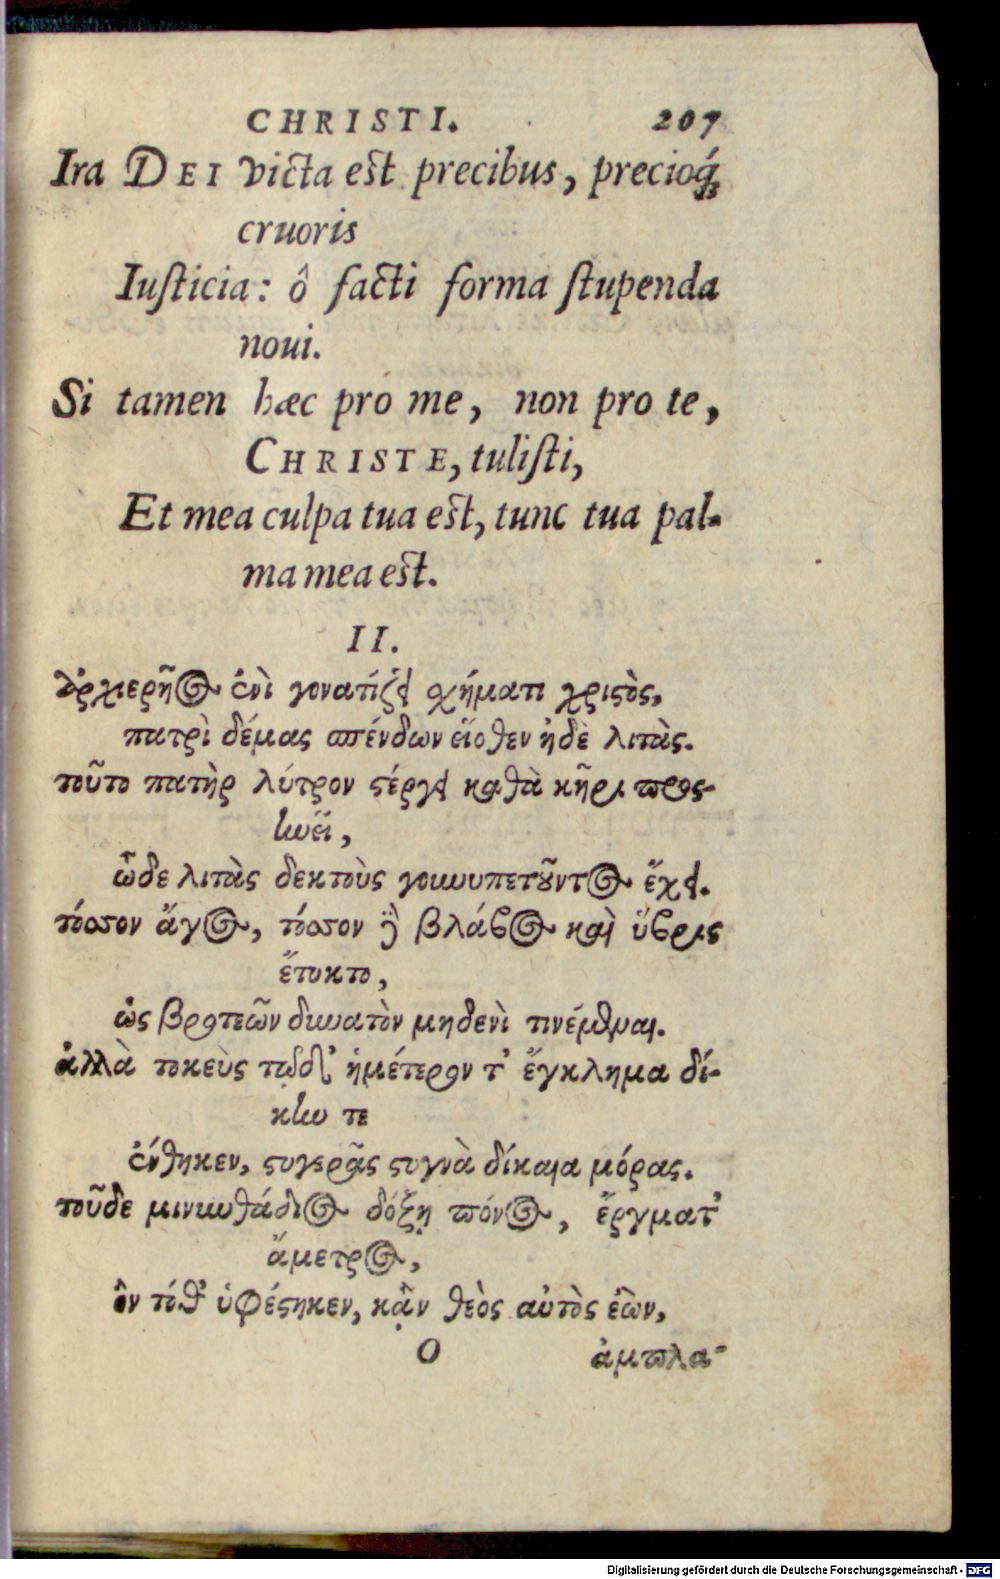 CHRISTI. 207
Ira DEI victa est precibus, precioq́;
cruoris
Iusticia: ô facti forma stupenda
noui.
Si tamen hæc pro me, non pro te,
CHRISTE, tulisti,
Et mea culpa tua est, tunc tua pal-
ma mea est.
II.
ἀρχιερῆος ἐνὶ γονατίζει χήματι χριστὸς,
πατρὶ δέμας σπένδων εἵοθεν ἠδὲ λιτὰς.
τοῦτο πατὴρ λύτρον στέργει καθὰ κῆρι προσ-
ηνὲϊ,
ὧδε λιτὰς δεκτοὺς γουνυπετοῦντος ἔχει.
τόσσον ἄγος, τόσσον γὰρ βλάβος καὶ ὕβρις
ἔτυκτο,
ὡς βροτεῶν δυνατὸν μηδενὶ τινέμθμαι.
ἀλλὰ τοκεὺς παιδὶ ἡμέτερον τ' ἔγκλημα δί-
κην τε
ἐνθηκεν, στυγερᾶς στυγνὰ δίκαια μόρας.
τοῦδε μινυνθάδιος δόξῃ πόνος, ἔργματ'
ἄμετρος,
ὃν τόθ' ὑφέστηκεν, κᾂν θεὸς αὐτὸς ἐὼν,
O ἀμπλα-
Digitalisierung gefördert durch die Deutsche Forschungsgemeinschaft - DFG